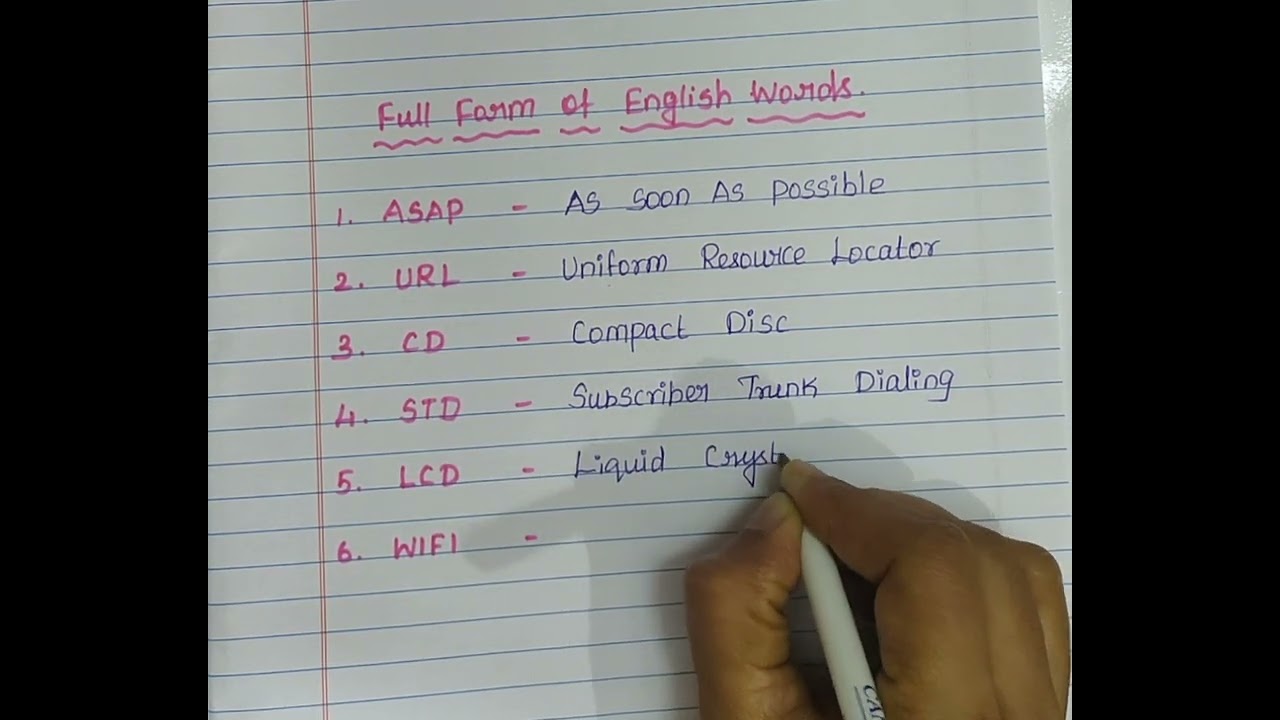 Full Form of English Words.
1. ASAP - As Soon As possible
2. URL - Uniform Resource Locator
3. CD - Compact Disc
4. STD - Subscriber Trunk Dialing
5. LCD - Liquid Cryst
6. WIFI -